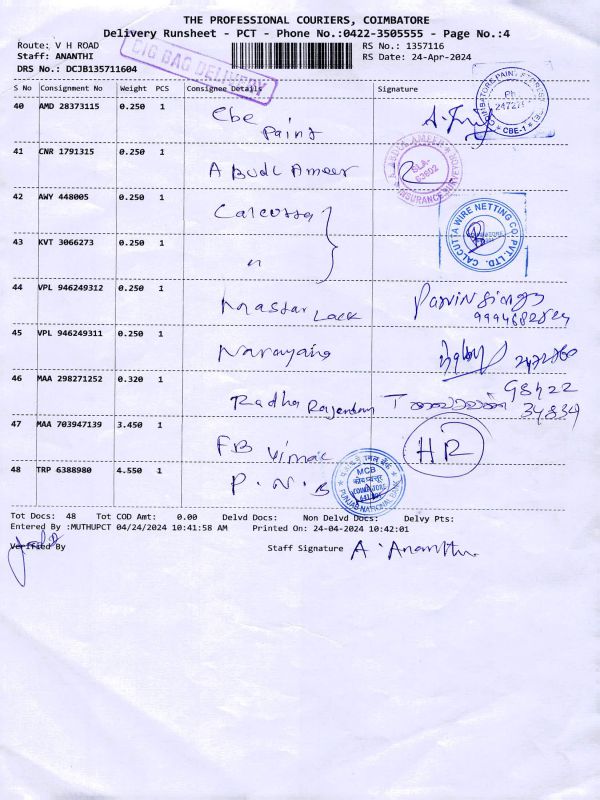 THE PROFESSIONAL COURIERS, COIMBATORE
Delivery Runsheet - PCT - Phone No.:0422-3505555 - Page No.:4
Route: V H ROAD
RS No.: 1357116
Staff: ANANTHI
RS Date: 24-Apr-2024
DRS No.: DCJB135711604
BIG BAG DELIVERY
S No Consignment No Weight PCS Consignee Details Signature
40 AMD 28373115 0.250 1 Cbe Paint
CBE-1
41 CNR 1791315 0.250 1 A Budl Ameer
A. ABDUL AMEER
SLA-
INSURANCE SURVEYOR
42 AWY 448005 0.250 1 Calcutta
CALCUTTA WIRE NETTING CO. PVT. LTD.
43 KVT 3066273 0.250 1 "
44 VPL 946249312 0.250 1 Master Lock
45 VPL 946249311 0.250 1 Narayana
46 MAA 298271252 0.320 1 Radha Rajendran
98422
34834
47 MAA 703947139 3.450 1 FB Vimal HR
48 TRP 6388980 4.550 1 P.N.B
MCB
COIMBATORE
PUNJAB NATIONAL BANK
Tot Docs: 48 Tot COD Amt: 0.00 Delvd Docs: Non Delvd Docs: Delvy Pts:
Entered By :MUTHUPCT 04/24/2024 10:41:58 AM Printed On: 24-04-2024 10:42:01
Verified By
Staff Signature A. Ananthi